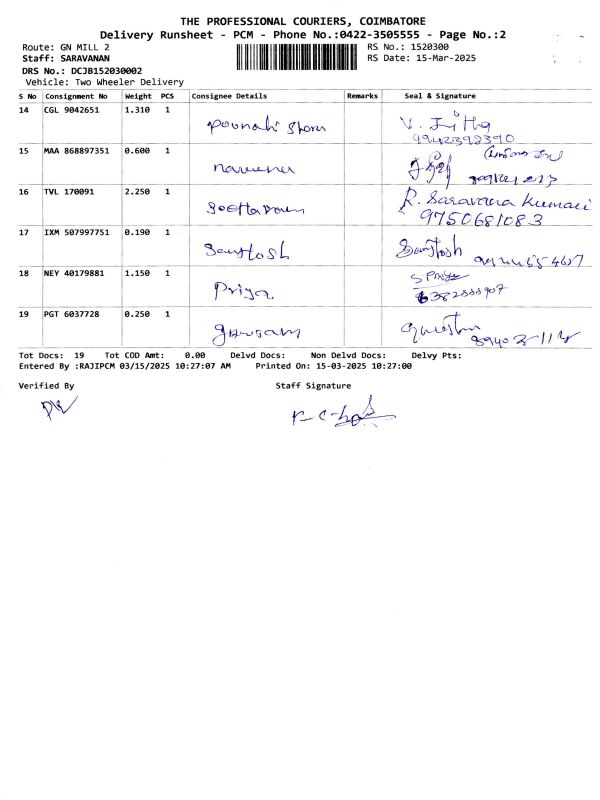 THE PROFESSIONAL COURIERS, COIMBATORE
Delivery Runsheet - PCM - Phone No.:0422-3505555 - Page No.:2
Route: GN MILL 2 RS No.: 1520300
Staff: SARAVANAN RS Date: 15-Mar-2025
DRS No.: DCJB152030002
Vehicle: Two Wheeler Delivery
S No Consignment No Weight PCS Consignee Details Remarks Seal & Signature
14 CGL 9042651 1.310 1
9942392390
15 MAA 868897351 0.600 1
16 TVL 170091 2.250 1 R. Saravana Kumari
9750681083
17 IXM 507997751 0.190 1 Santosh Santosh
18 NEY 40179881 1.150 1 Priya S Priya
6382888907
19 PGT 6037728 0.250 1
Tot Docs: 19 Tot COD Amt: 0.00 Delvd Docs: Non Delvd Docs: Delvy Pts:
Entered By :RAJIPCM 03/15/2025 10:27:07 AM Printed On: 15-03-2025 10:27:00
Verified By Staff Signature